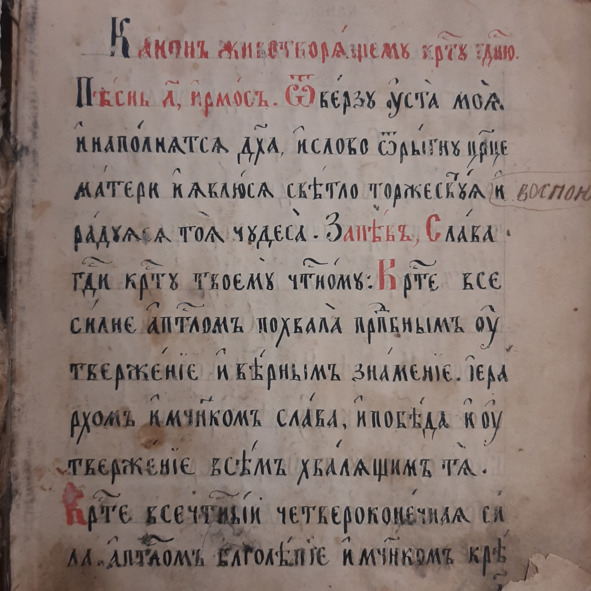 Канѡнъ животворѧ́щему крⷭ҇ту гдⷭ҇ню.
Пѣ́снь а҃, і҆рмо́съ. Ѿве́рзу ᲂу҆ста̀ моѧ̀
и҆ напо́лнѧтсѧ дх҃а, и҆ сло́во ѿры́гну цр҃це
матери и҆ ꙗ҆влю́сѧ свѣ́тло торжесвꙋѧ и҆ воспою
ра́дуѧсѧ тоѧ̀ чудеса̀. Запѣ́въ, Сла́ва
гдⷭ҇и крⷭ҇ту твоемꙋ̀ чтⷭ҇ному: Крⷭ҇те все
си́лне а҆пⷭ҇тлом похвала̀ прпⷣбнымъ ᲂу҆
твержéнїе и҆ вѣ́рнымъ зна́менїе. І҆ера
рхомъ и҆ мч҃нкомъ сла́ва, и҆ побѣ́да и҆ ᲂу҆
твержéнїе всѣ́мъ хва́лѧщимъ тѧ̀.
Крⷭ҇те всечⷭ҇тны́й четвероконе́чнаѧ си
ла. а҆пⷭ҇тломъ бл҃голѣ́пїе и҆ мч҃нкомъ крѣ́